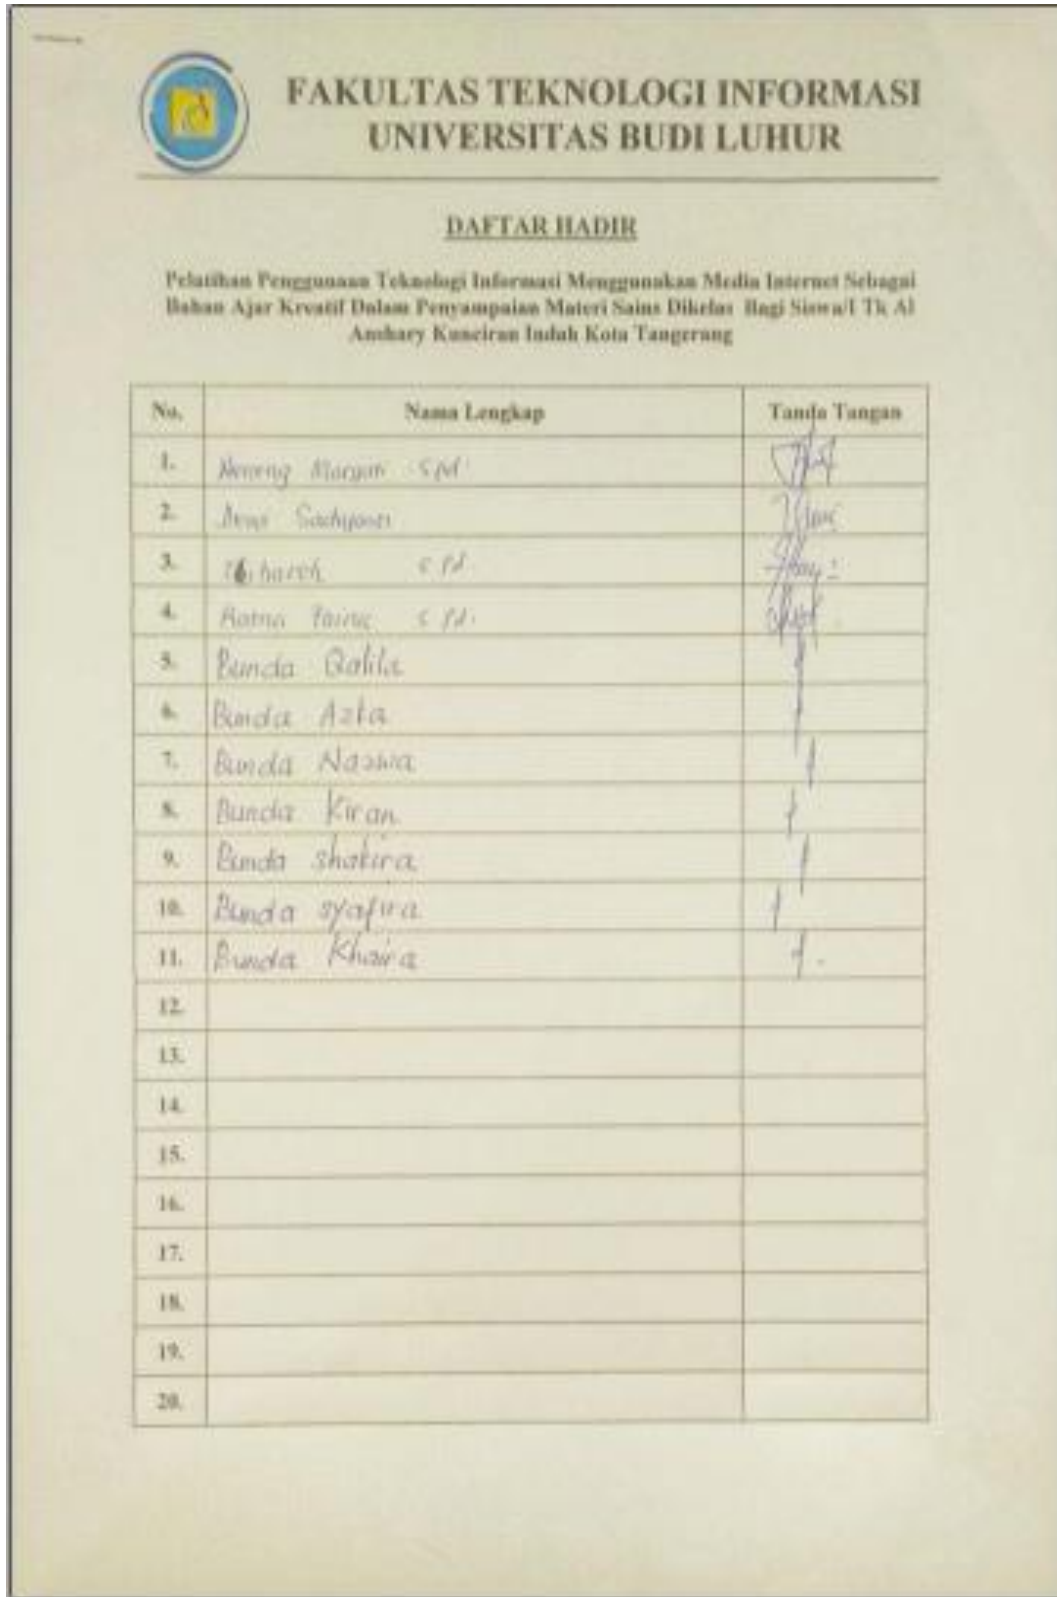 FAKULTAS TEKNOLOGI INFORMASI
UNIVERSITAS BUDI LUHUR
DAFTAR HADIR
Pelatihan Penggunaan Teknologi Informasi Menggunakan Media Internet Sebagai
Bahan Ajar Kreatif Dalam Penyampaian Materi Sains Dikelas Bagi Siswa/I Tk Al
Anshary Kunciran Indah Kota Tangerang
No. Nama Lengkap Tanda Tangan
1. Neneng S.Pd.
2.
3. S.Pd.
4. Ratna S.Pd.
5. Bunda Qalila
6. Bunda Azka
7. Bunda Naswa
8. Bunda Kiran
9. Bunda shakira
10. Bunda syafira
11. Bunda Khaira
12.
13.
14.
15.
16.
17.
18.
19.
20.